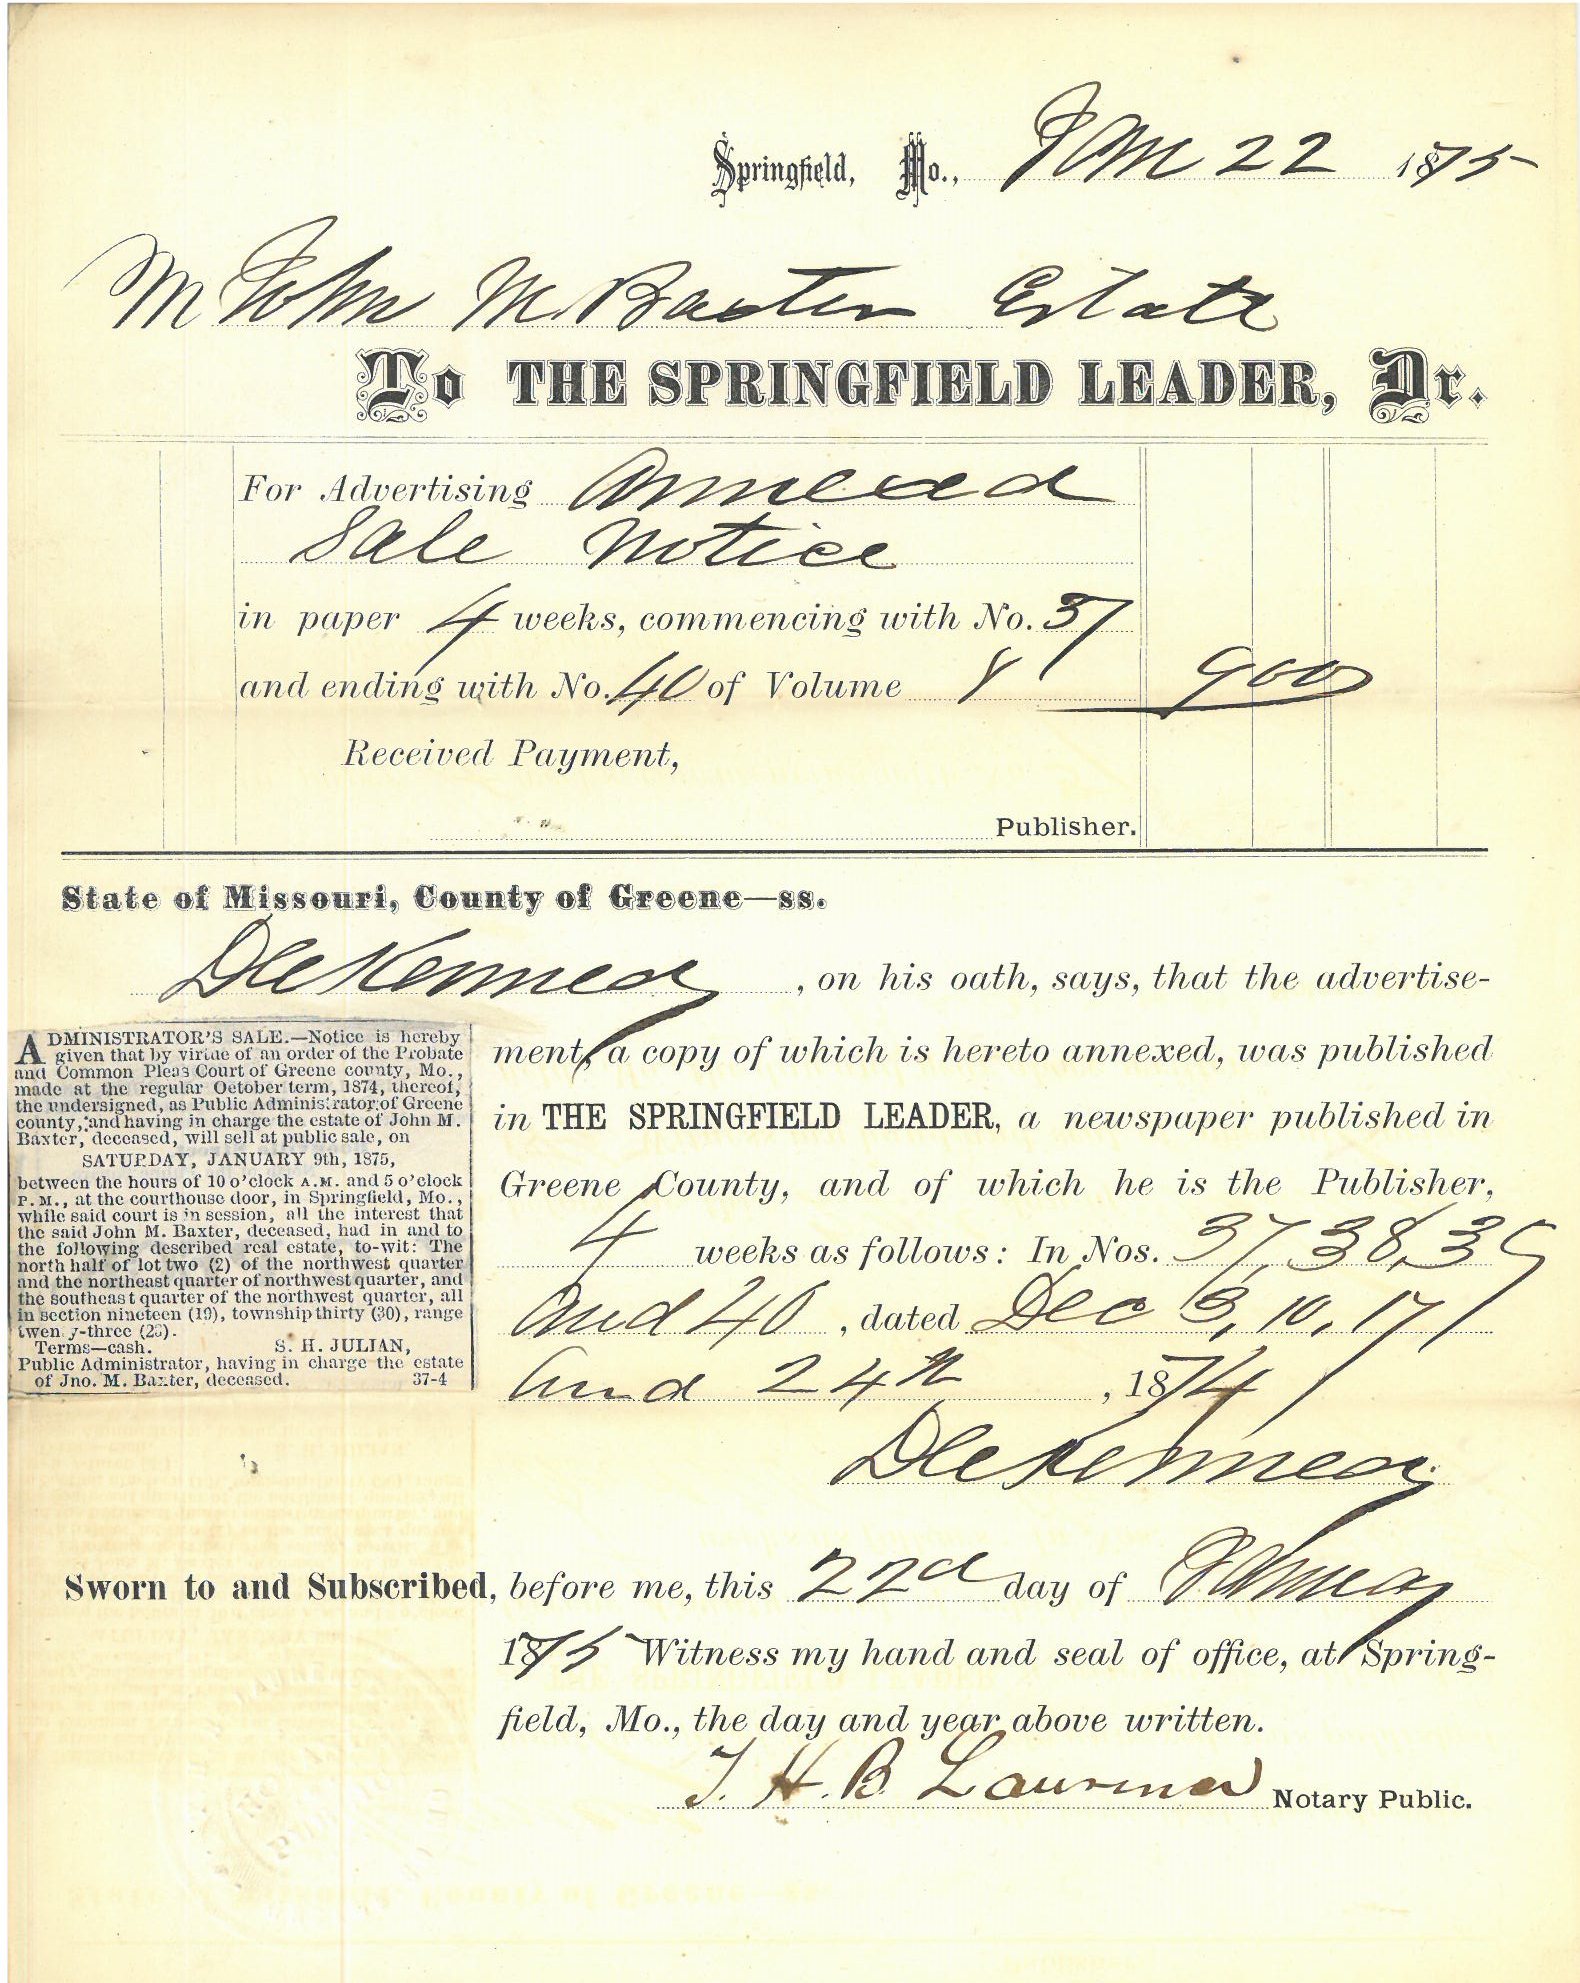 Springfield, Mo., Jan 22 1875
M John M. Baxter Estate
To THE SPRINGFIELD LEADER, Dr.
For Advertising Annexed
Sale Notice
in paper 4 weeks, commencing with No. 37
and ending with No. 40 of Volume 8 900
Received Payment,
Publisher.
State of Missouri, County of Greene—ss.
D C Kennedy, on his oath, says, that the advertise-
ment, a copy of which is hereto annexed, was published
in THE SPRINGFIELD LEADER, a newspaper published in
Greene County, and of which he is the Publisher,
4 weeks as follows: In Nos. 37, 38, 39
and 40, dated Dec 3, 10, 17
and 24th, 1874
D C Kennedy
ADMINISTRATOR'S SALE.—Notice is hereby
given that by virtue of an order of the Probate
and Common Pleas Court of Greene county, Mo.,
made at the regular October term, 1874, thereof,
the undersigned, as Public Administrator of Greene
county, and having in charge the estate of John M.
Baxter, deceased, will sell at public sale, on
SATURDAY, JANUARY 9th, 1875,
between the hours of 10 o'clock A.M. and 5 o'clock
P.M., at the courthouse door, in Springfield, Mo.,
while said court is in session, all the interest that
the said John M. Baxter, deceased, had in and to
the following described real estate, to-wit: The
north half of lot two (2) of the northwest quarter
and the northeast quarter of northwest quarter, and
the southeast quarter of the northwest quarter, all
in section nineteen (19), township thirty (30), range
twenty-three (23).
Terms—cash. S. H. JULIAN,
Public Administrator, having in charge the estate
of Jno. M. Baxter, deceased. 37-4
Sworn to and Subscribed, before me, this 22d day of January
1875 Witness my hand and seal of office, at Spring-
field, Mo., the day and year above written.
J. H. B. Notary Public.